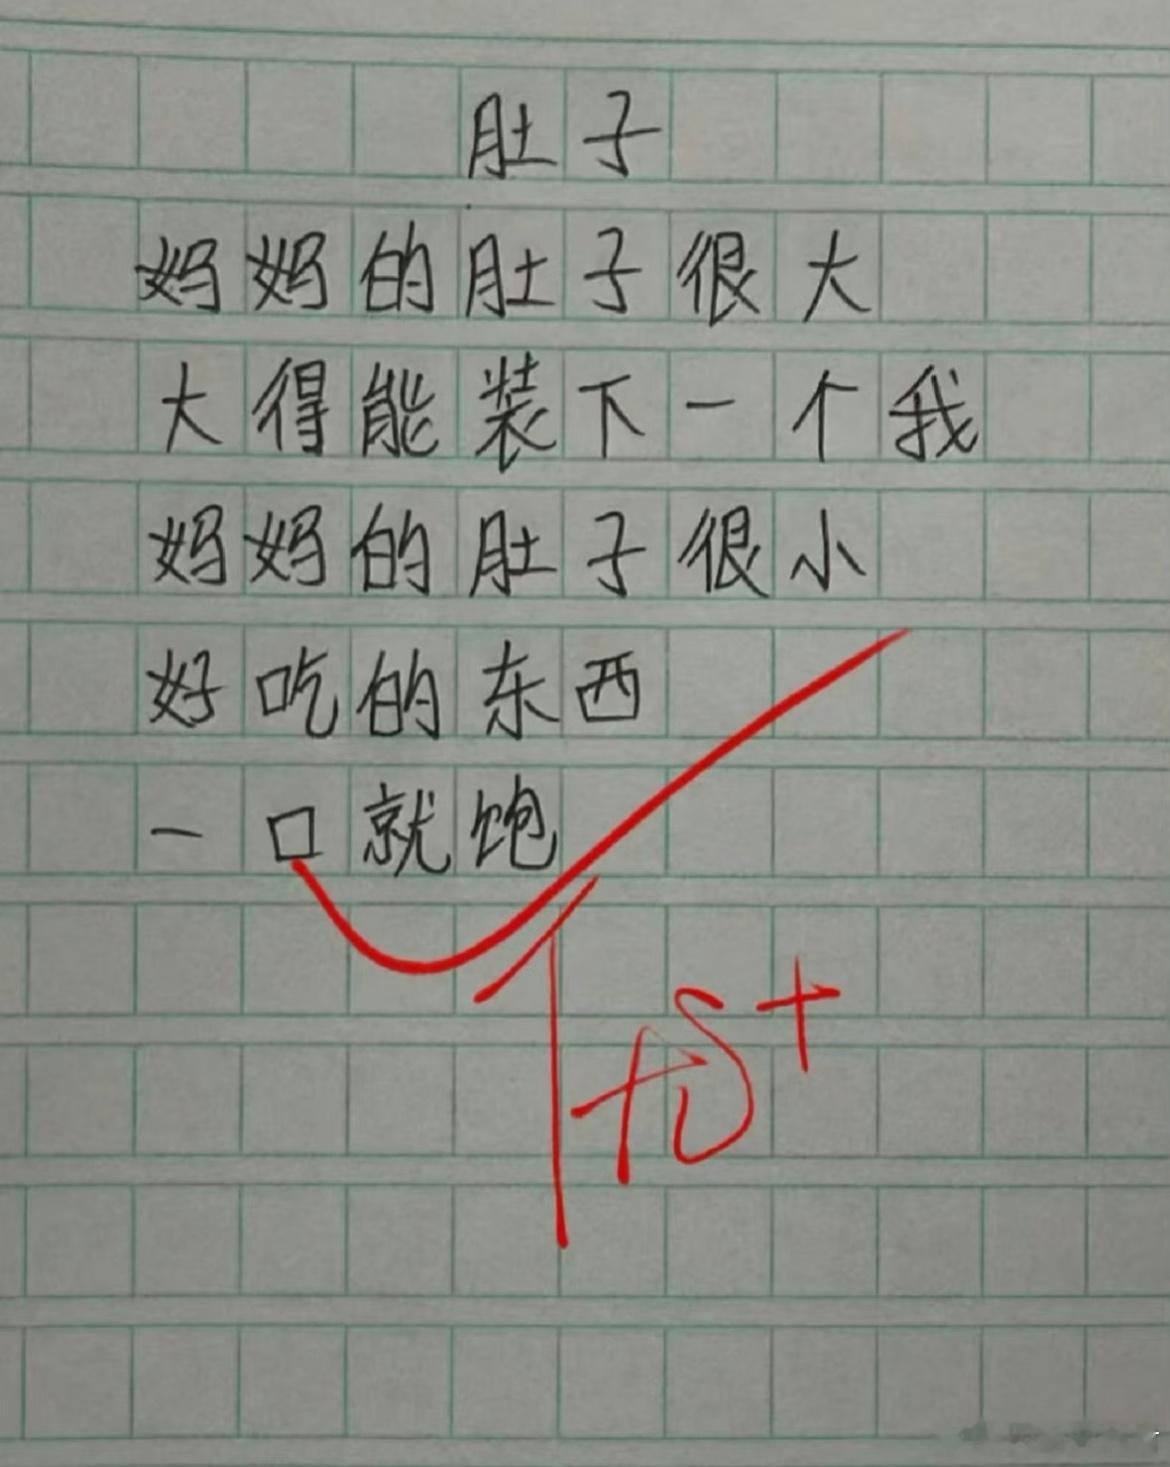 肚子
妈妈的肚子很大
大得能装下一个我
妈妈的肚子很小
好吃的东西
一口就饱
优+